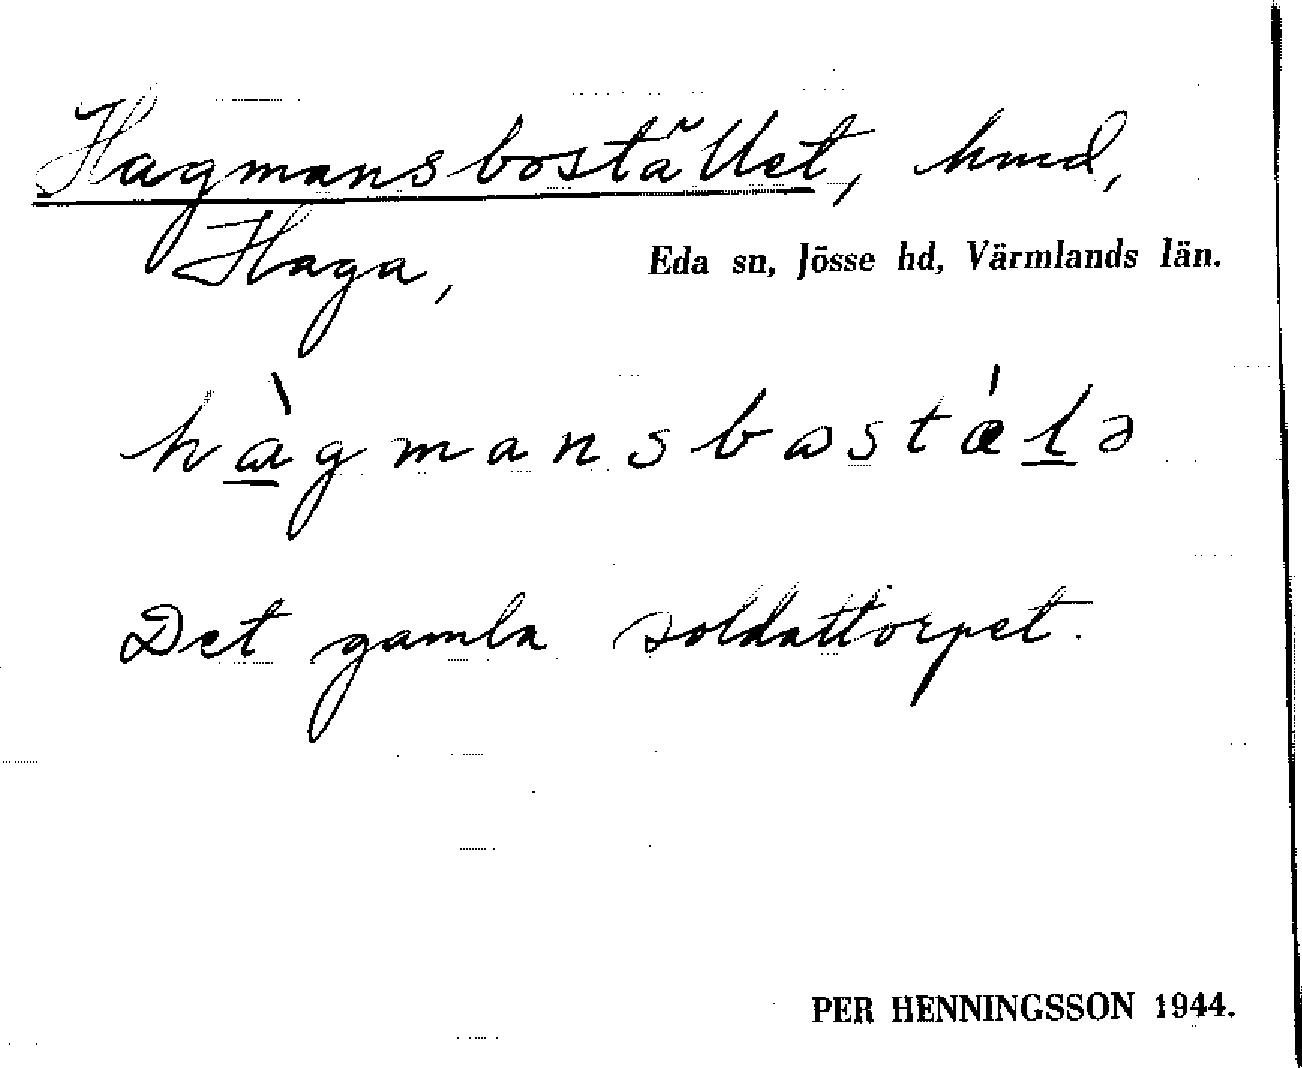 Hagmansbostället, hmd,
Haga, Eda sn, Jösse hd, Värmlands län.
hàgmansbostǽlə
Det gamla soldattorpet.
PER HENNINGSSON 1944.